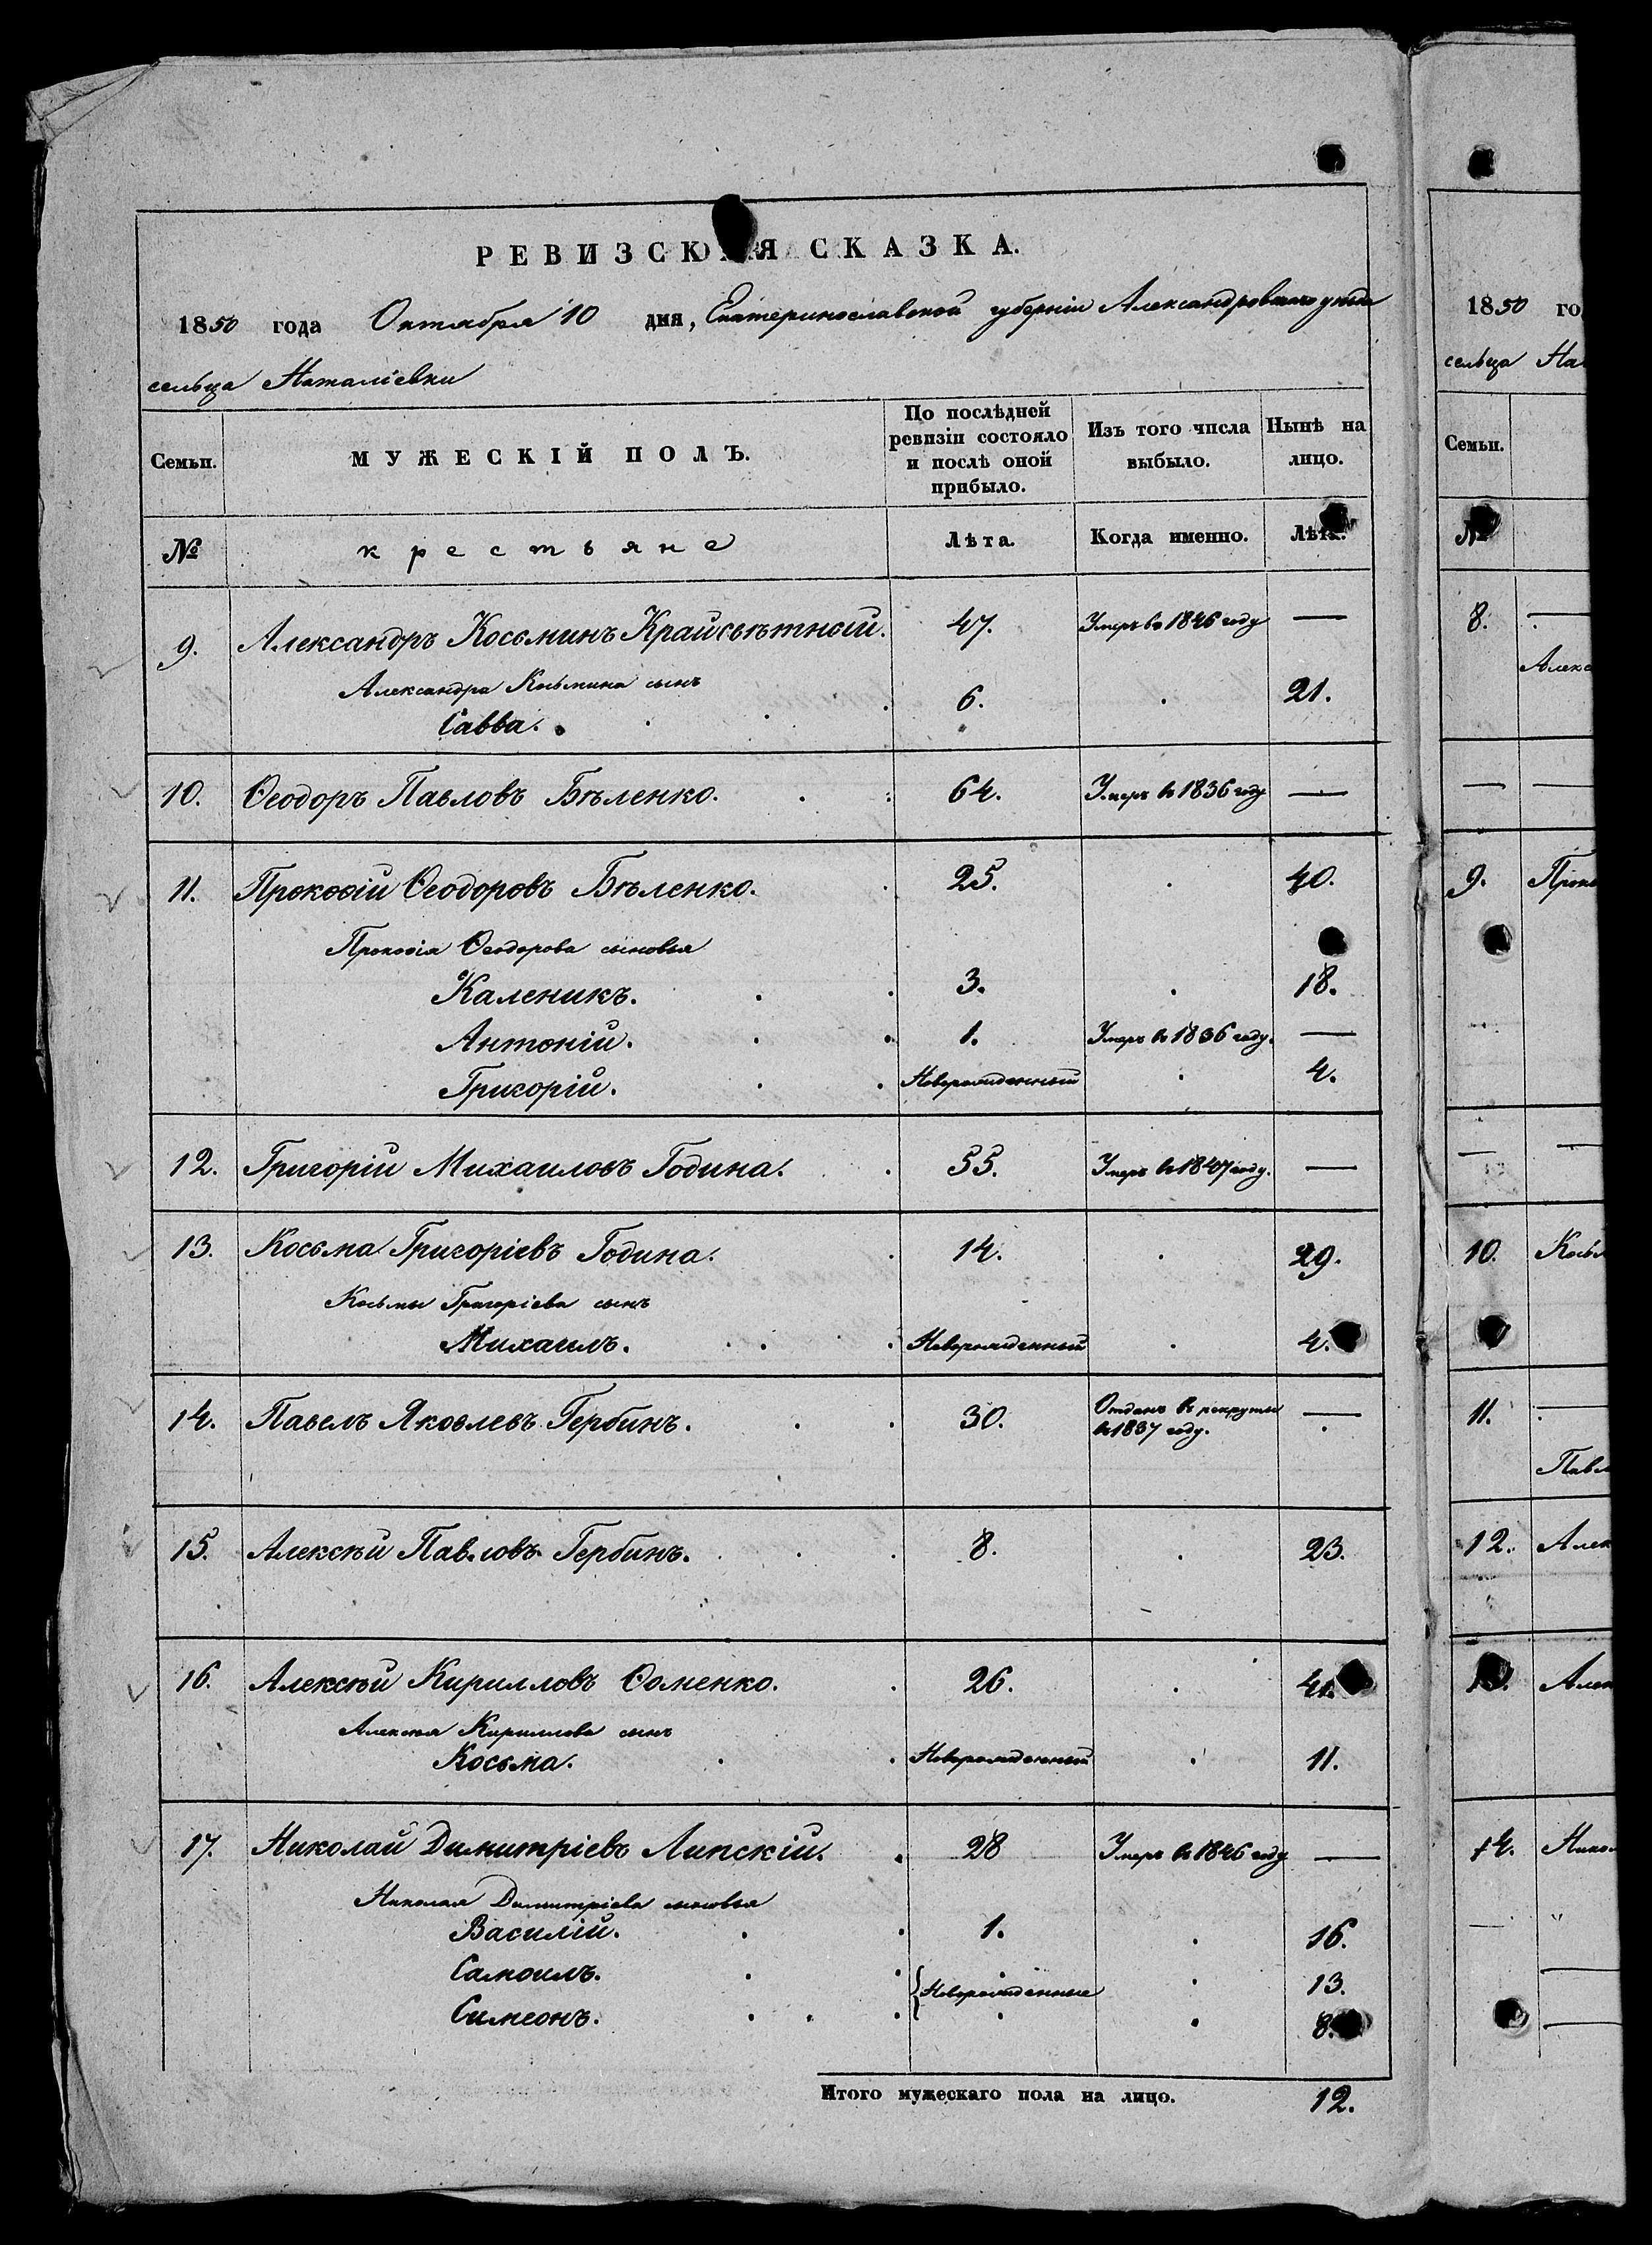 РЕВИЗСКАЯ СКАЗКА.
1850 года Октября 10 дня, Екатеринославской губерніи Александровскаго уѣзда
сельца Наталіевки
Семьи. МУЖЕСКІЙ ПОЛЪ. По послѣдней ревизіи состояло и послѣ оной прибыло. Изъ того числа выбыло. Нынѣ на лицо.
№ крестьяне Лѣта. Когда именно. Лѣта.
9. Александръ Косьминъ Крайсвѣтный. 47. Умеръ въ 1846 году —
Александра Косьмина сынъ
Савва. 6. 21.
10. Ѳеодоръ Павловъ Бѣленко. 64. Умеръ въ 1836 году —
11. Прокофій Ѳеодоровъ Бѣленко. 25. 40.
Прокофія Ѳеодорова сыновья
Каленикъ. 3. 18.
Антоній. 1. Умеръ въ 1836 году. —
Григорій. Новорожденный 4.
12. Григорій Михаиловъ Година. 55. Умеръ въ 1847 году. —
13. Косьма Григоріевъ Година. 14. 29.
Косьмы Григоріева сынъ
Михаилъ. Новорожденный 4.
14. Павелъ Яковлевъ Гербинъ. 30. Отданъ въ рекруты —
въ 1837 году.
15. Алексѣй Павловъ Гербинъ. 8. 23.
16. Алексѣй Кирилловъ Ѳоменко. 26. 41.
Алексѣя Кириллова сынъ
Косьма. Новорожденный 11.
17. Николай Димитріевъ Липскій. 28 Умеръ въ 1846 году —
Николая Димитріева сыновья
Василій. 1. 16.
Самоилъ. Новорожденные 13.
Симеонъ. 8.
Итого мужескаго пола на лицо. 12.
1850 го
сельца На
Семьи.
№
8. —
Алекс
— —
9. Прок
— —
10. Кось
11. —
Павл
12. Алек
13. Алек
14. Никол
— "
—
—